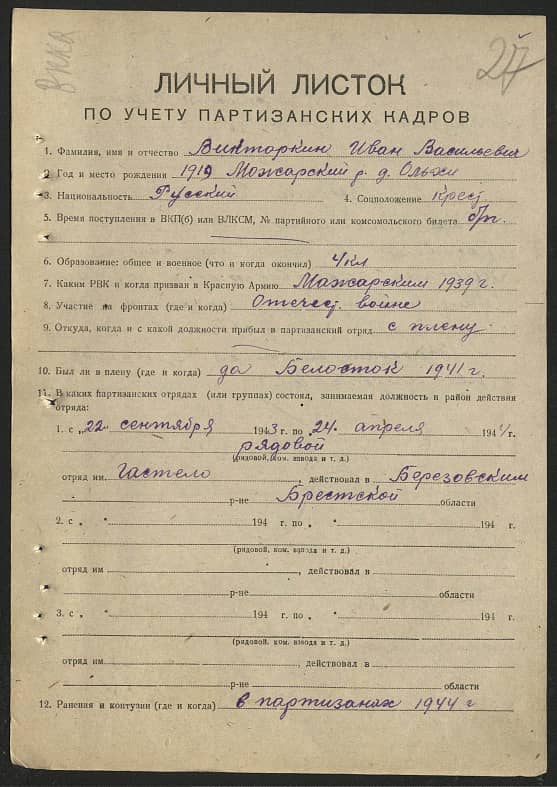 27
ЛИЧНЫЙ ЛИСТОК
ПО УЧЕТУ ПАРТИЗАНСКИХ КАДРОВ
1. Фамилия, имя и отчество Викторкин Иван Васильевич
2. Год и место рождения 1919 Можарский р. д. Ольхи
3. Национальность Русский 4. Соцположение крест.
5. Время поступления в ВКП(б) или ВЛКСМ, № партийного или комсомольского билета б/п.
6. Образование: общее и военное (что и когда окончил) 4 кл
7. Каким РВК и когда призван в Красную Армию Можарским 1939 г.
8. Участие на фронтах (где и когда) Отечест. войне
9. Откуда, когда и с какой должности прибыл в партизанский отряд с плену
10. Был ли в плену (где и когда) да Белосток 1941 г.
11. В каких партизанских отрядах (или группах) состоял, занимаемая должность и район действия
отряда:
1. с „22" сентября 1943 г. по 24 апреля 1944 г.
рядовой
(рядовой, ком. взвода и т. д.)
отряд им. Гастело, действовал в Березовским
р-не Брестской области
2. с „ " 194 г. по „ " 194 г.
(рядовой, ком. взвода и т. д.)
отряд им , действовал в
р-не области
3. с „ " 194 г. по „ " 194 г.
(рядовой, ком. взвода и т. д.)
отряд им. , действовал в
р-не области
12. Ранения и контузии (где и когда) в партизанах 1944 г